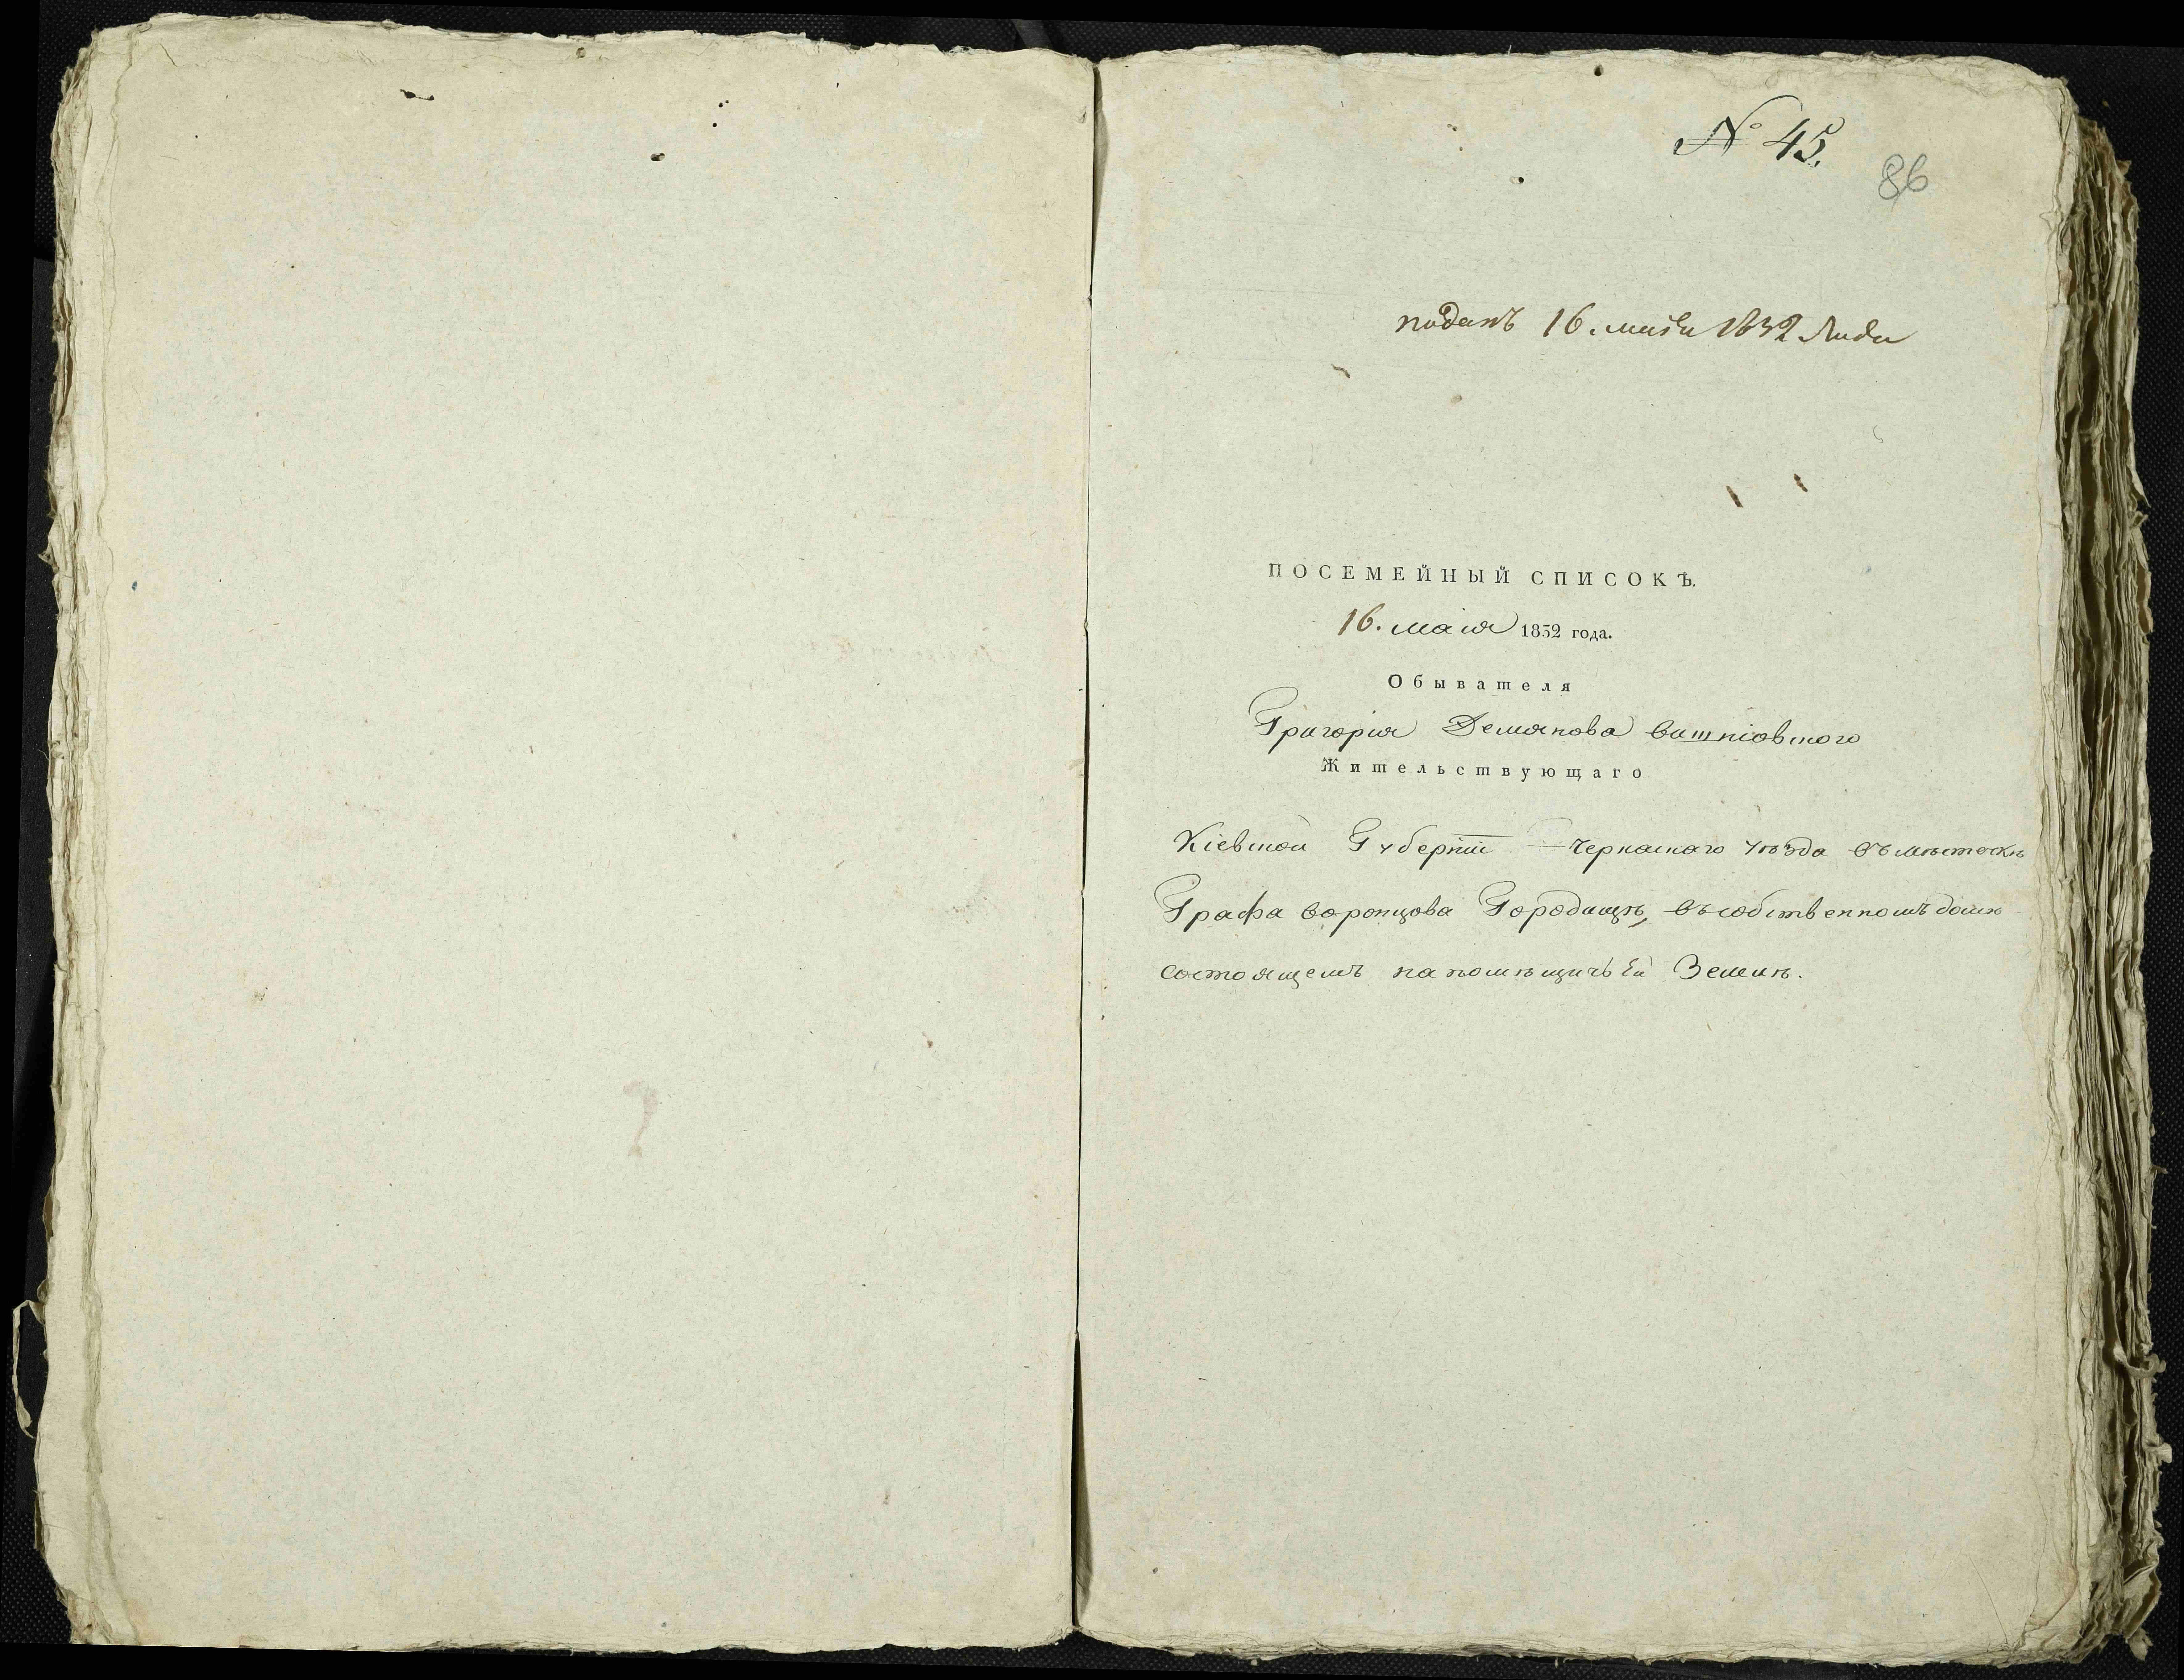 № 45.
86
поданъ 16. маія 1832 года
ПОСЕМЕЙНЫЙ СПИСОКЪ.
16. маія 1832 года.
Обывателя
Григорія Демянова вишніовского
Жительствующаго
Кіевской Губерніи Черкаскаго уѣзда въ мѣстечкѣ
Графа воронцова Городищѣ, въ собственномъ домѣ
состоящемъ на помѣщичьей Землѣ.